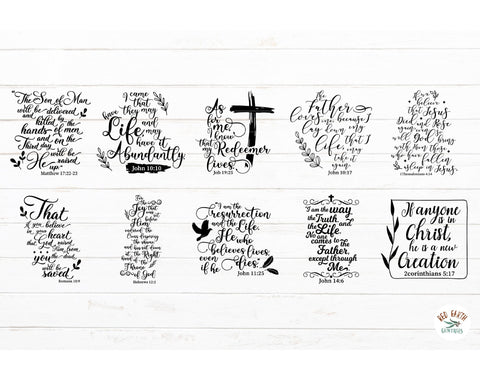 The Son of Man
will be delivered
and killed by the
hands of men
and on the
Third day
He will be
raised up.
Matthew 17:22-23
I came
that they may
have Life
and may
have it
Abundantly.
John 10:10
As
for me,
I know
that my
Redeemer
lives.
Job 19:25
The
Father
Loves me because I
lay down my
life that I
may take
it again.
John 10:17
believe
that Jesus
Died & Rose
again
will God bring
with Him those
fallen
asleep in Jesus.
1 Thessalonians 4:14
That
if you believe
in your heart
that God raised
Him from
the dead,
you will be
saved.
Romans 10:9
Joy
Him
endured
the Cross
despising
the shame
and
sat down
at the Right
hand of the
Throne
of God.
Hebrews 12:2
I am the
resurrection
and the Life.
He who
believes lives
even if
he dies.
John 11:25
I am the way,
the Truth, and
the Life.
No one
comes to
the Father,
except through
Me.
John 14:6
If anyone
is in
Christ,
he is a new
Creation
2corinthians 5:17
RED EARTH